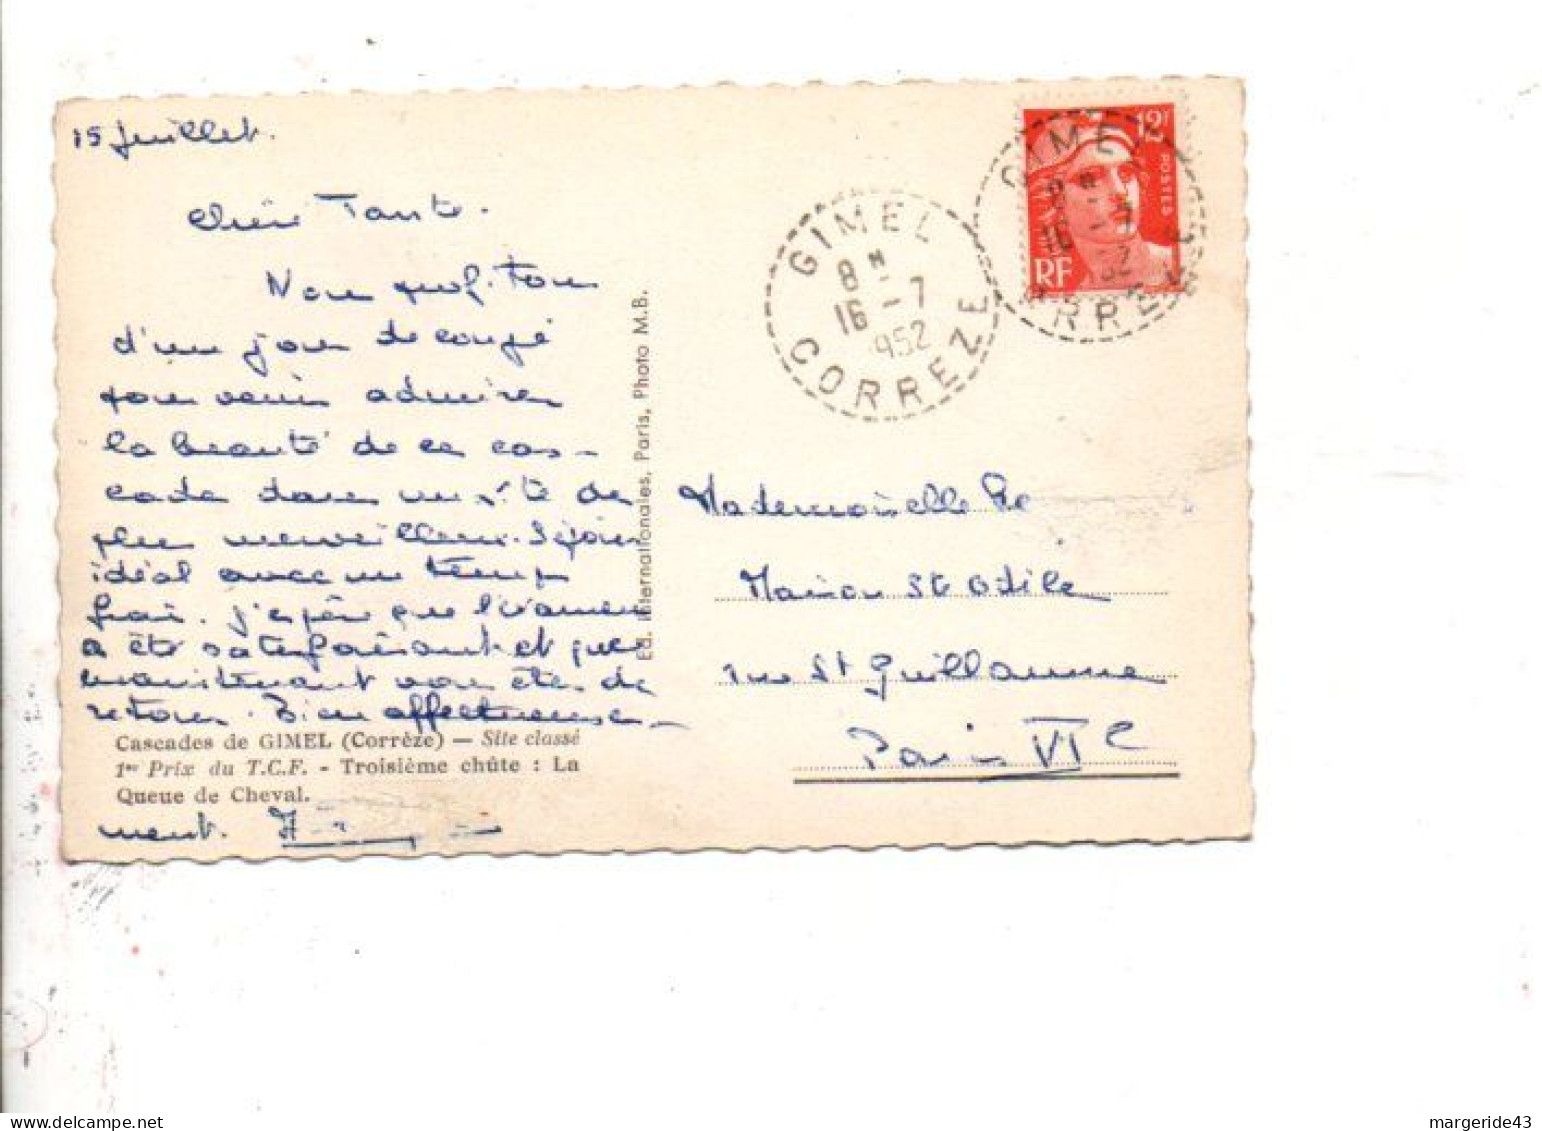 15 Juillet.
Chère Tante.
Nous profitons
d'un jour de congé
pour venir admirer
la beauté de ce cas-
cade dans un site de
plus merveilleux. Séjour
idéal avec un temps
frais. J'espère que l'examen
a été satisfaisant et que
maintenant vous êtes de
retour. Bien affectueuse-
Cascades de GIMEL (Corrèze) — Site classé
1er Prix du T.C.F. - Troisième chûte : La
Queue de Cheval.
ment.
Ed. Internationales, Paris, Photo M.B.
GIMEL
8 H
16 - 7
1952
CORREZE
12F
POSTES
RF
GIMEL
8 H
16 - 7
52
CORREZE
Mademoiselle
Maison St Odile
rue St Guillaume
Paris VIe
margeride43